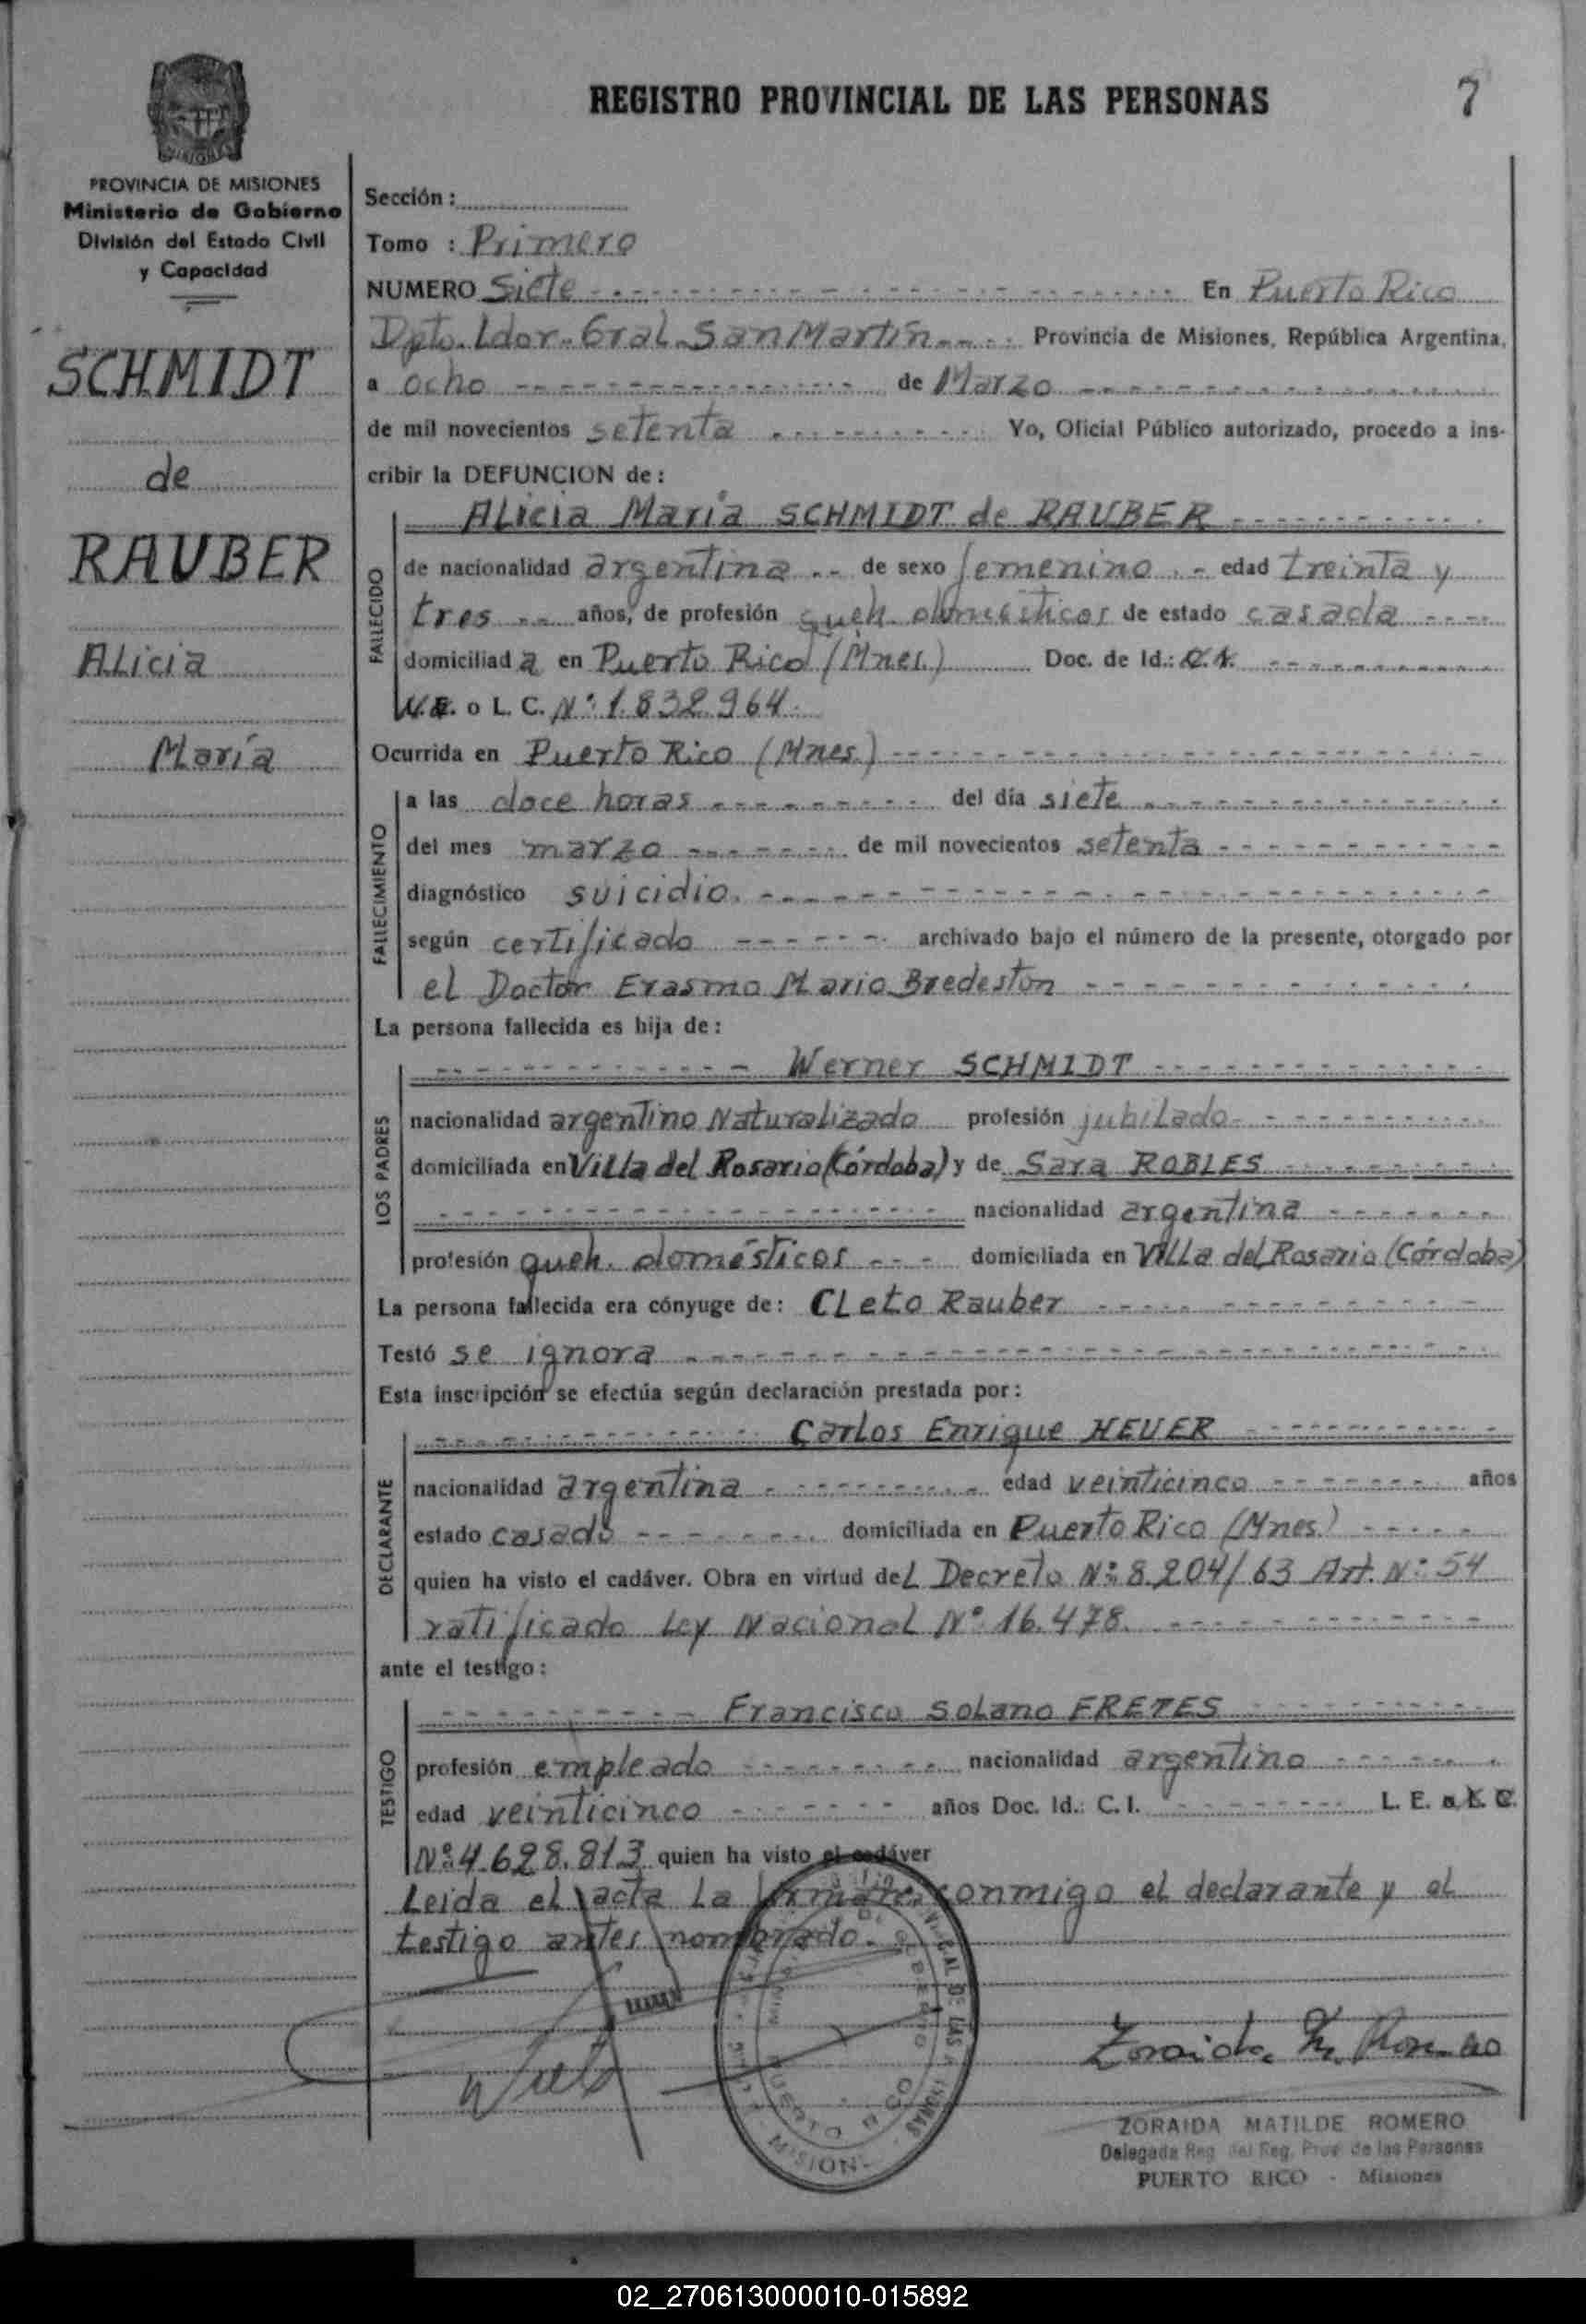 REGISTRO PROVINCIAL DE LAS PERSONAS
7
PROVINCIA DE MISIONES
Ministerio de Gobierno
División del Estado Civil
y Capacidad
SCHMIDT
de
RAUBER
Alicia
María
Sección :
Tomo : Primero
NUMERO Siete En Puerto Rico
Dpto. Ldor. Gral. San Martín Provincia de Misiones, República Argentina,
a ocho de Marzo
de mil novecientos setenta Yo, Oficial Público autorizado, procedo a ins-
cribir la DEFUNCION de :
Alicia María SCHMIDT de RAUBER
FALLECIDO
de nacionalidad argentina de sexo femenino edad treinta y
tres años, de profesión queh. domésticos de estado casada
domiciliad a en Puerto Rico (Mnes.) Doc. de Id.:
o L. C. Nº 1.832.964.
Ocurrida en Puerto Rico (Mnes.)
FALLECIMIENTO
a las doce horas del día siete
del mes marzo de mil novecientos setenta
diagnóstico suicidio.
según certificado archivado bajo el número de la presente, otorgado por
el Doctor Erasmo Mario Bredeston
La persona fallecida es hija de :
Werner SCHMIDT
LOS PADRES
nacionalidad argentino Naturalizado profesión jubilado
domiciliada en Villa del Rosario (Córdoba) y de Sara ROBLES
nacionalidad argentina
profesión queh. domésticos domiciliada en Villa del Rosario (Córdoba)
La persona fallecida era cónyuge de : Cleto Rauber
Testó se ignora
Esta inscripción se efectúa según declaración prestada por :
Carlos Enrique HEUER
DECLARANTE
nacionalidad argentina edad veinticinco años
estado casado domiciliada en Puerto Rico (Mnes.)
quien ha visto el cadáver. Obra en virtud del Decreto Nº 8.204/63 Art. Nº 54
ratificado Ley Nacional Nº 16.478.
ante el testigo :
Francisco Solano FRETES
TESTIGO
profesión empleado nacionalidad argentino
edad veinticinco años Doc. Id.: C. I. L. E. o L. C.
Nº 4.628.813 quien ha visto el cadáver
Leida el acta la firman conmigo el declarante y el
testigo antes nombrado.
PUERTO RICO
Zoraida M. Romero
ZORAIDA MATILDE ROMERO
Delegada Reg. del Reg. Prov. de las Personas
PUERTO RICO - Misiones
02_270613000010-015892